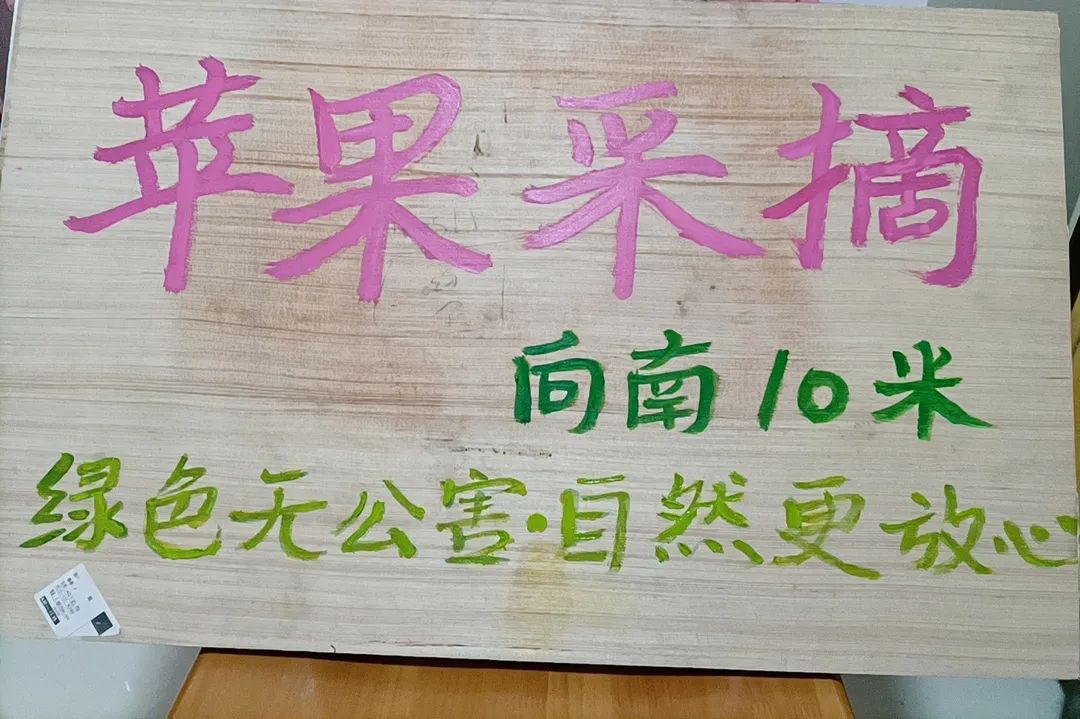 苹果采摘
向南10米
绿色无公害·自然更放心